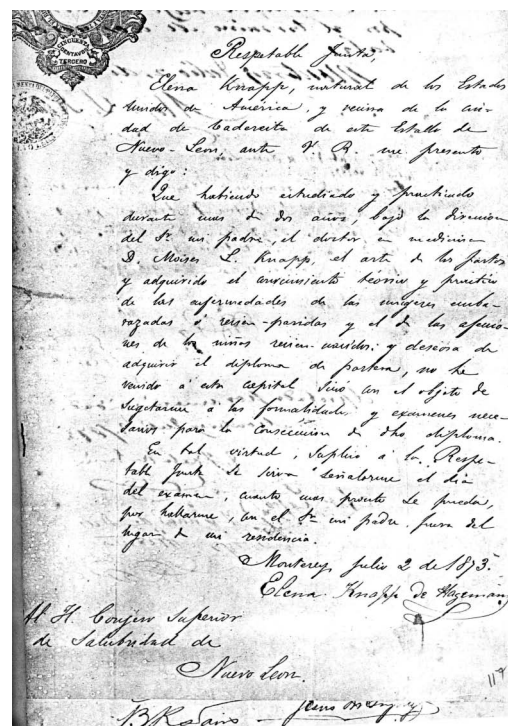 CINCUENTA
CENTAVOS
TERCERO
Respetable Junta,
Elena Knapp, natural de los Estados
Unidos de America, y vecina de la ciu-
dad de Cadereita de este Estado de
Nuevo-Leon, ante V. R. me presento
y digo:
Que habiendo estudiado y practicado
durante mas de dos años, bajo la direccion
del Sr. mi padre, el doctor en medicina
D. Moises L. Knapp, el arte de los partos
y adquirido el conocimiento teorico y practico
de las enfermedades de las mugeres emba-
razadas ó recien-paridas y el de las afeccio-
nes de los niños recien-nacidos; y deseosa de
adquirir el diploma de partera, no he
venido á esta capital sinó con el objeto de
sugetarme a las formalidades y examenes nece-
sarios para la consecucion de dho. diploma.
En tal virtud, suplico á la Respe-
table Junta se sirva señalarme el dia
del examen, cuanto mas pronto se pueda,
por hallarme, con el Sr. mi padre, fuera del
lugar de mi residencia.
Monterey Julio 2 de 1873.
Elena Knapp de Hageman
Al H. Consejo Superior
de Salubridad de
Nuevo Leon.